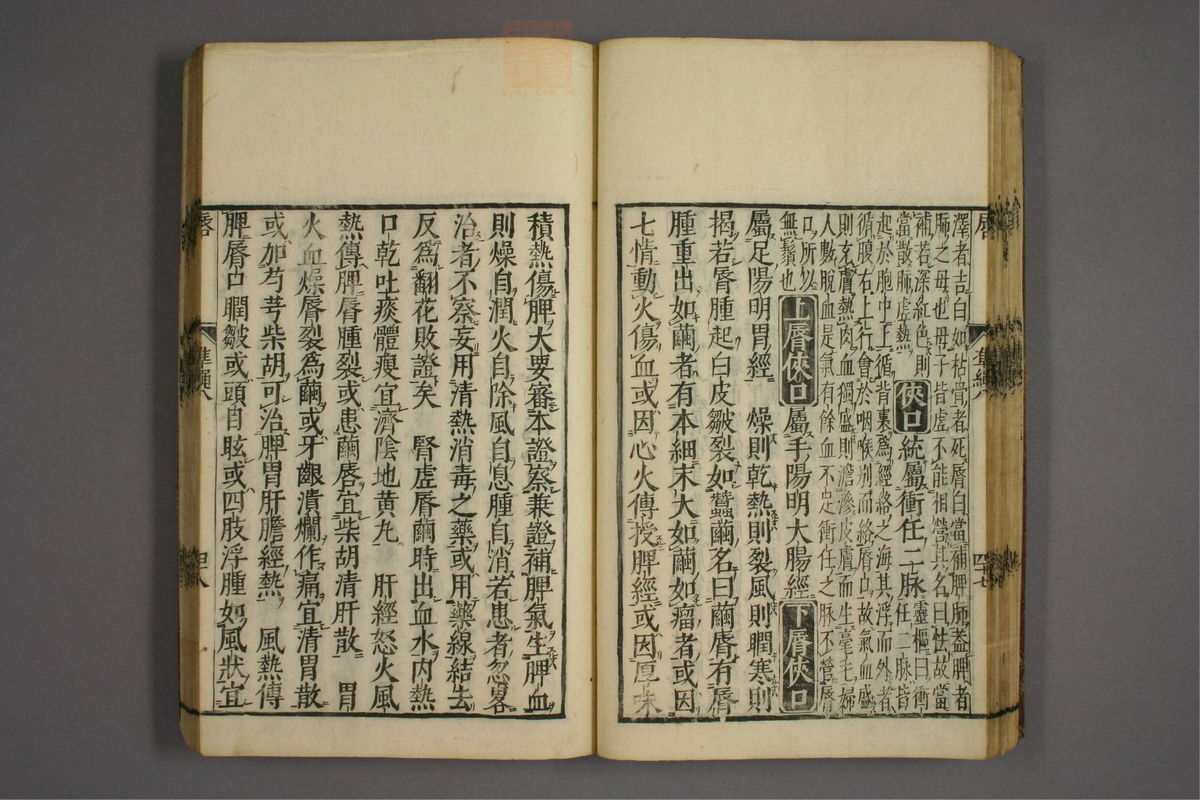 澤者吉白如枯骨者死脣白當補脾肺蓋脾者
肺之母也母子皆虛不能相營其名曰怯故當
補若深紅色則
當散肺虛熱
俠口
統屬衝任二脉
靈樞曰衝
任二脉皆
起於胞中上循背裏爲經絡之海其浮而外者
循腹右上行會於咽喉別而絡脣口故氣血盛
則充膚熱肉血獨盛則澹滲皮膚而生毫毛婦
人數脫血是氣有餘血不足衝任之脉不營脣
口所以
無鬚也
上脣俠口
屬手陽明大腸經
下脣俠口
屬足陽明胃經 燥則乾熱則裂風則瞤寒則
揭若脣腫起白皮皺裂如蠶繭名曰繭脣有脣
腫重出如繭者有本細末大如繭如瘤者或因
七情動火傷血或因心火傳授脾經或因厚味
積熱傷脾大要審本證察兼證補脾氣生脾血
則燥自潤火自除風自息腫自消若患者忽畧
治者不察妄用清熱消毒之藥或用藥線結去
反爲翻花敗證矣 腎虛脣繭時出血水內熱
口乾吐痰體瘦宜濟陰地黃丸 肝經怒火風
熱傳脾脣腫裂或患繭唇宜柴胡清肝散 胃
火血燥脣裂爲繭或牙齦潰爛作痛宜清胃散
或加芍芎柴胡可治脾胃肝膽經熱 風熱傳
脾脣口瞤皺或頭目眩或四肢浮腫如風狀宜